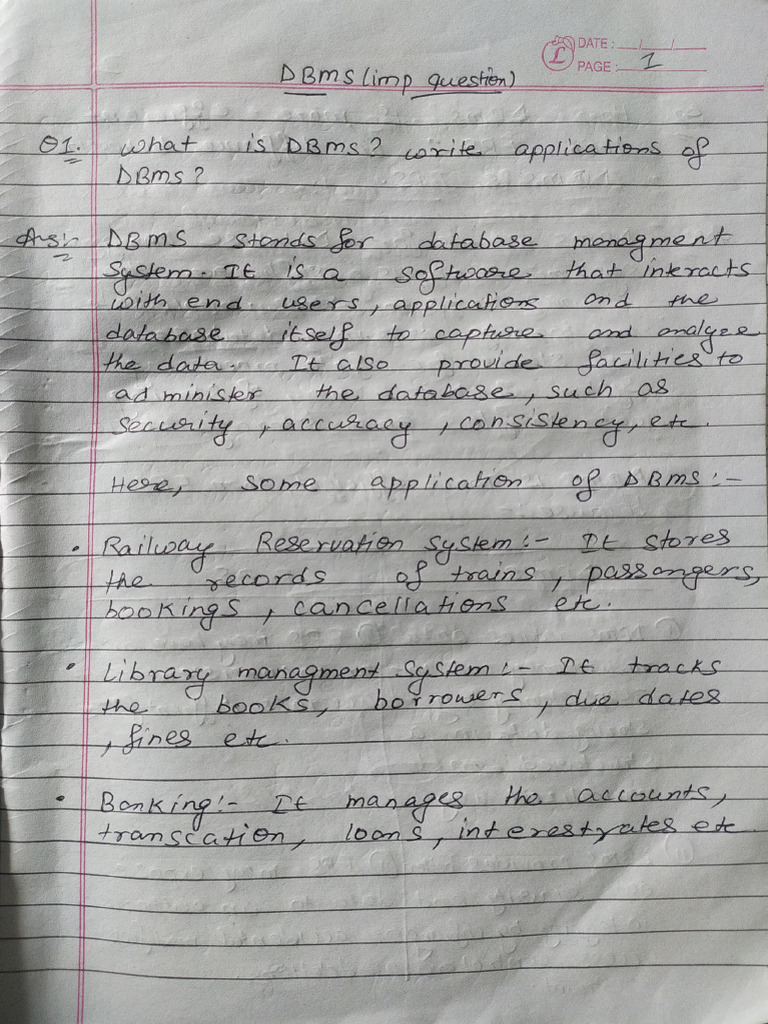 DATE: __/__/__
PAGE: 1
DBMS (imp question)
Q1. What is DBMS? write applications of
DBMS?
Ans:- DBMS stands for database managment
System. It is a software that interacts
with end users, applications and the
database itself to capture and analyze
the data. It also provide facilities to
administer the database, such as
Security, accuracy, consistency, etc.
Here, some application of DBMS:-
• Railway Reservation System:- It stores
the records of trains, passangers,
bookings, cancellations etc.
• Library managment System:- It tracks
the books, borrowers, due dates
, fines etc.
• Banking:- It manages the accounts,
transcation, loans, interestrates etc